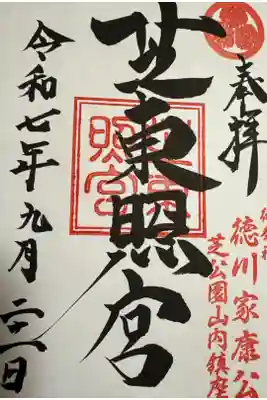 奉拝
御祭神
徳川家康公
芝公園山内鎮座
芝東照宮
令和七年九月二十一日